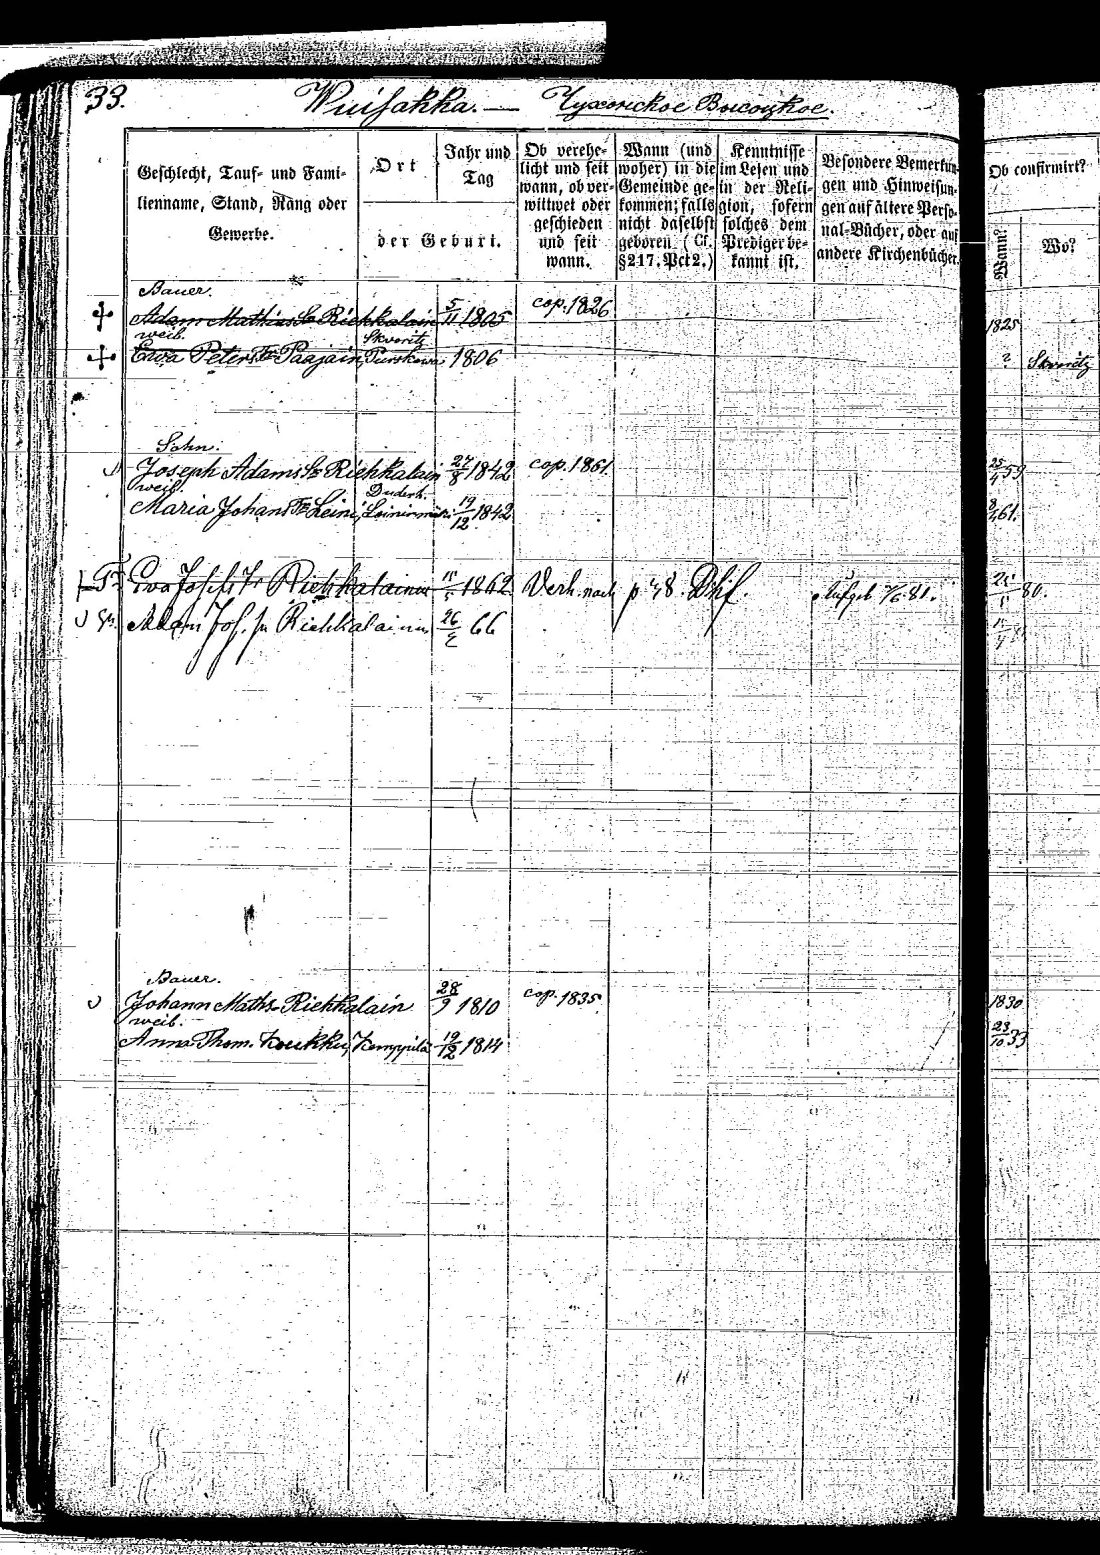 33. Wuisakka. — Чухонское Высоцкое.
Geschlecht, Tauf- und Fami-
lienname, Stand, Rang oder
Gewerbe.
Ort
Jahr und
Tag
der Geburt.
Ob verehe-
licht und seit
wann, ob ver-
wittwet oder
geschieden
und seit
wann.
Wann (und
woher) in die
Gemeinde ge-
kommen; falls
nicht daselbst
geboren (Cf.
§217. Pct 2.)
Kenntnisse
im Lesen und
in der Reli-
gion, sofern
solches dem
Prediger be-
kannt ist.
Besondere Bemerkun-
gen und Hinweisun-
gen auf ältere Perso-
nal-Bücher, oder auf
andere Kirchenbücher.
Ob confirmirt?
Wann?
Wo?
Bauer.
Adam Mathias So Riekkalain 5/11 1805 cop. 1826 1825
weib. Skworitz
Ewa Peters To Paajain, 1806 ? Skworitz
Sohn.
Joseph Adams So Riekkalain 27/8 1842 cop. 1861 25/4 59
weib. Duderh.
Maria Johans To Leini, 19/12 1842 61.
Ewa Josefs To Riekkalainen 1862 Verh. nach p 48. Aufgeb 81. 80.
Adam Jos. Sn Riekkalainen 26/2 66
Bauer.
Johann Maths. Riekkalain 28/9 1810 cop. 1835. 1830
weib.
Anna Thom. Koukku, Kemppilä 19/12 1814 23/10 33